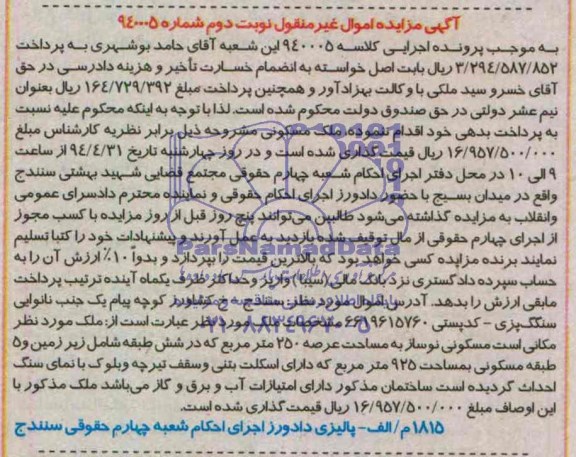 آگهی مزایده اموال غیرمنقول نوبت دوم شماره ۹۴۰۰۰۵
به موجب پرونده اجرایی کلاسه ۹۴۰۰۰۵ این شعبه آقای حامد بوشهری به پرداخت
۳/۲۹۴/۵۸۷/۸۵۲ ریال بابت اصل خواسته به انضمام خسارت تأخیر و هزینه دادرسی در حق
آقای خسرو سید ملکی با وکالت بهزاد آور و همچنین پرداخت مبلغ ۱۶۴/۷۲۹/۳۹۲ ریال بعنوان
نیم عشر دولتی در حق صندوق دولت محکوم شده است. لذا با توجه به اینکه محکوم علیه نسبت
به پرداخت بدهی خود اقدام ننموده، ملک مسکونی مشروحه ذیل برابر نظریه کارشناس مبلغ
۱۶/۹۵۷/۵۰۰/۰۰۰ ریال قیمت گذاری شده است و در روز چهارشنبه تاریخ ۹۴/۴/۳۱ از ساعت
۹ الی ۱۰ در محل دفتر اجرای احکام شعبه چهارم حقوقی مجتمع قضایی شهید بهشتی سنندج
واقع در میدان بسیج با حضور دادورز اجرای احکام حقوقی و نماینده محترم دادسرای عمومی
وانقلاب به مزایده گذاشته می‌شود طالبین می‌توانند پنج روز قبل از روز مزایده با کسب مجوز
از اجرای چهارم حقوقی از مال توقیف شده بازدید به عمل آورند و پیشنهادات خود را کتبا تسلیم
نمایند برنده مزایده کسی خواهد بود که بالاترین قیمت را بپردازد و بدواً ۱۰٪ ارزش آن را به
حساب سپرده دادگستری نزد بانک ملی (سیبا) واریز وحداکثر ظرف یکماه آینده ترتیب پرداخت
مابقی ارزش را بدهد. آدرس اموال مورد نظر سنندج - خ کشاورز کوچه پیام یک جنب نانوایی
سنگک‌پزی - کدپستی ۶۶۱۹۶۱۵۷۶۰ مشخصات مورد نظر عبارت است از: ملک مورد نظر
مکانی است مسکونی نوساز به مساحت عرصه ۲۵۰ متر مربع که در شش طبقه شامل زیر زمین و۵
طبقه مسکونی بمساحت ۹۲۵ متر مربع که دارای اسکلت بتنی وسقف تیرچه وبلوک با نمای سنگ
احداث گردیده است ساختمان مذکور دارای امتیازات آب و برق و گاز می‌باشد ملک مذکور با
این اوصاف مبلغ ۱۶/۹۵۷/۵۰۰/۰۰۰ ریال قیمت گذاری شده است.
۱۸۱۵ م/ الف- پالیزی دادورز اجرای احکام شعبه چهارم حقوقی سنندج
ParsNamadData